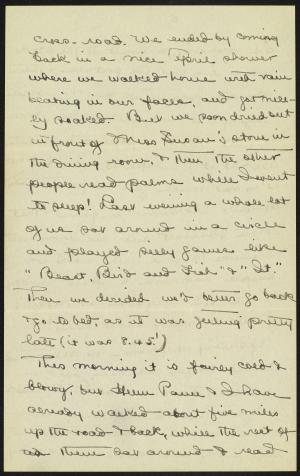 cross-road. We ended by coming
back in a nice April shower
where we walked home with rain
beating in our faces, and got nice-
ly soaked. But we soon dried out
in front of Miss Susan's stove in
the dining room, & then the other
people read palms while I went
to sleep! Last evening a whole lot
of us sat around in a circle
and played silly games like
"Beast, Bird and Fish" & "It."
Then we decided we'd better go back
& go to bed, as it was getting pretty
late (it was 8.45!)
This morning it is fairly cold &
blowy, but Helen Paine & I have
already walked about five miles
up the road & back, while the rest of
them sat around & read